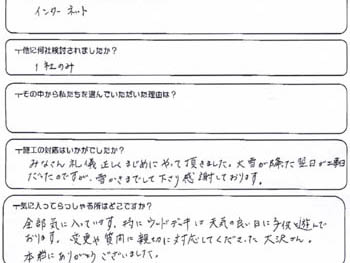 インターネット
他に何社検討されましたか?
1社のみ
その中から私たちを選んでいただいた理由は?
施工の対応はいかがでしたか?
みなさん礼儀正しくまじめにやって頂きました。大雪が降った翌日が工事日
だったのですが、雪かきまでして下さり感謝しております。
気に入ってらっしゃる所はどこですか?
全部気に入っています。特にウッドデッキは天気の良い日に子供と遊んで
おります。変更や質問に親切に対応してくださった大沢さん。
本当にありがとうございました。